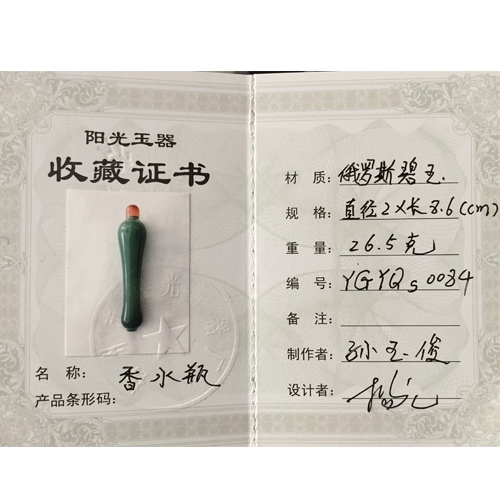 阳光玉器
收藏证书
名 称: 香水瓶
产品条形码:
材 质: 俄罗斯碧玉
规 格: 直径2×长8.6(cm)
重 量: 26.5克
编 号: YGYQs0084
备 注:
制作者: 孙玉俊
设计者: